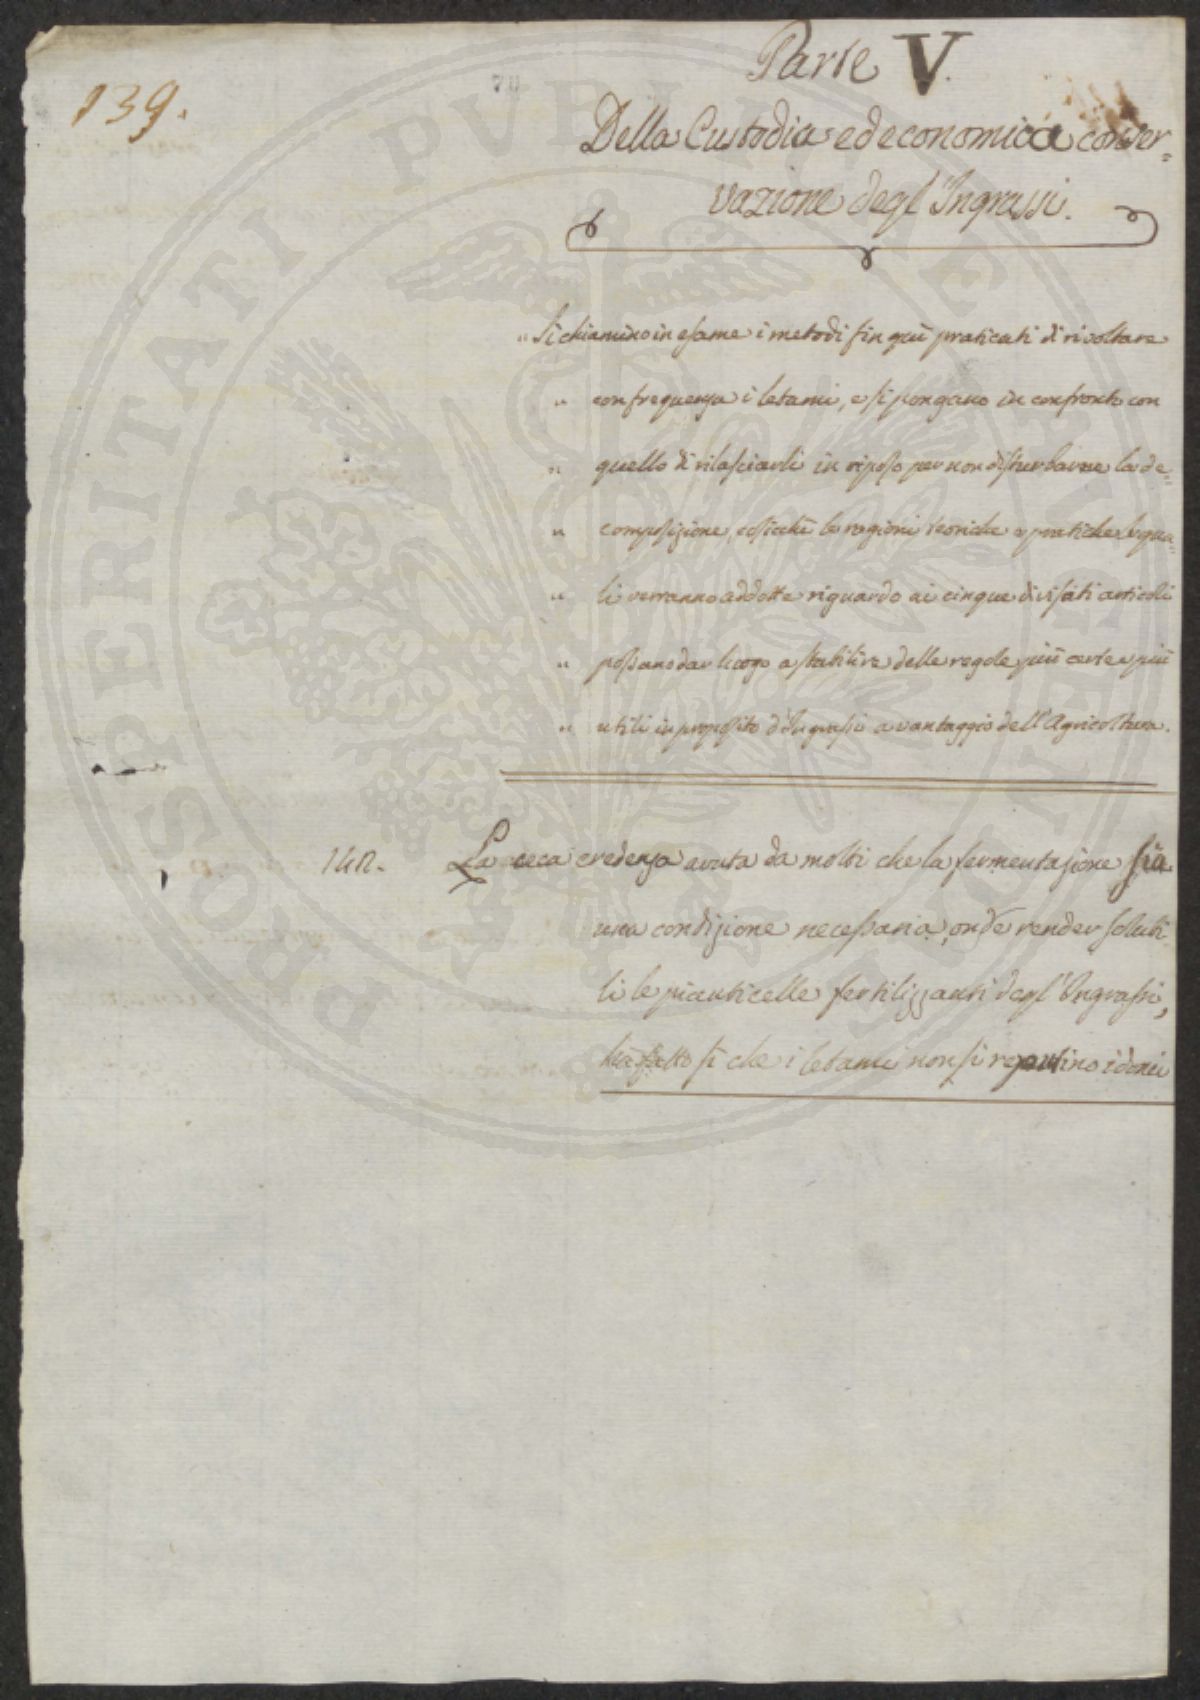 139.
Parte V.
Della Custodia ed economica conser=
vazione degl'Ingrassi.
„ Si chiamino in esame i metodi fin quì praticati di rivoltare
„ con frequenza i letami, e si pongano in confronto con
„ quello di rilasciarli in riposo per non disturbarne la de=
„ composizione, cosicchè le ragioni teoriche e pratiche le qua=
„ li verranno addotte riguardo ai cinque divisati articoli
„ possano dar luogo a stabilire delle regole più certe e più
„ utili in proposito d'Ingrassi a vantaggio dell'Agricoltura.
La ceca credenza avuta da molti che la fermentazione sia
una condizione necessaria, onde render solubi
li le particelle fertilizzanti degl'Ingrassi,
hà fatto sì che i letami non si reputino idonei
PROSPERITATI PVBLICAE